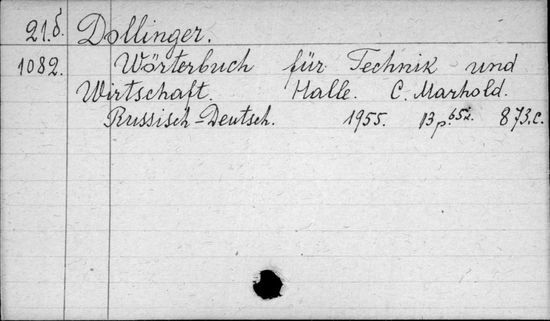 21.б. Dollinger.
1082. Wörterbuch für Technik und
Wirtschaft. Halle. C. Marhold.
Russisch-Deutsch. 1955. 13р.65к. 873.с.